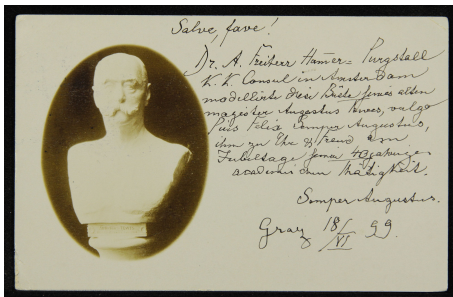 Salve, fave!
Dr. A. Freiherr Hamer-Purgstall
K. K. Consul in Amsterdam
modellirte diese Büste seines alten
magister Augustus
Pius Felix semper Augustus,
ihm zu Ehr & Freud am
Jubeltage seiner 40jährigen
academischen Thätigkeit.
Semper Augustus.
Graz 18/VI 99.